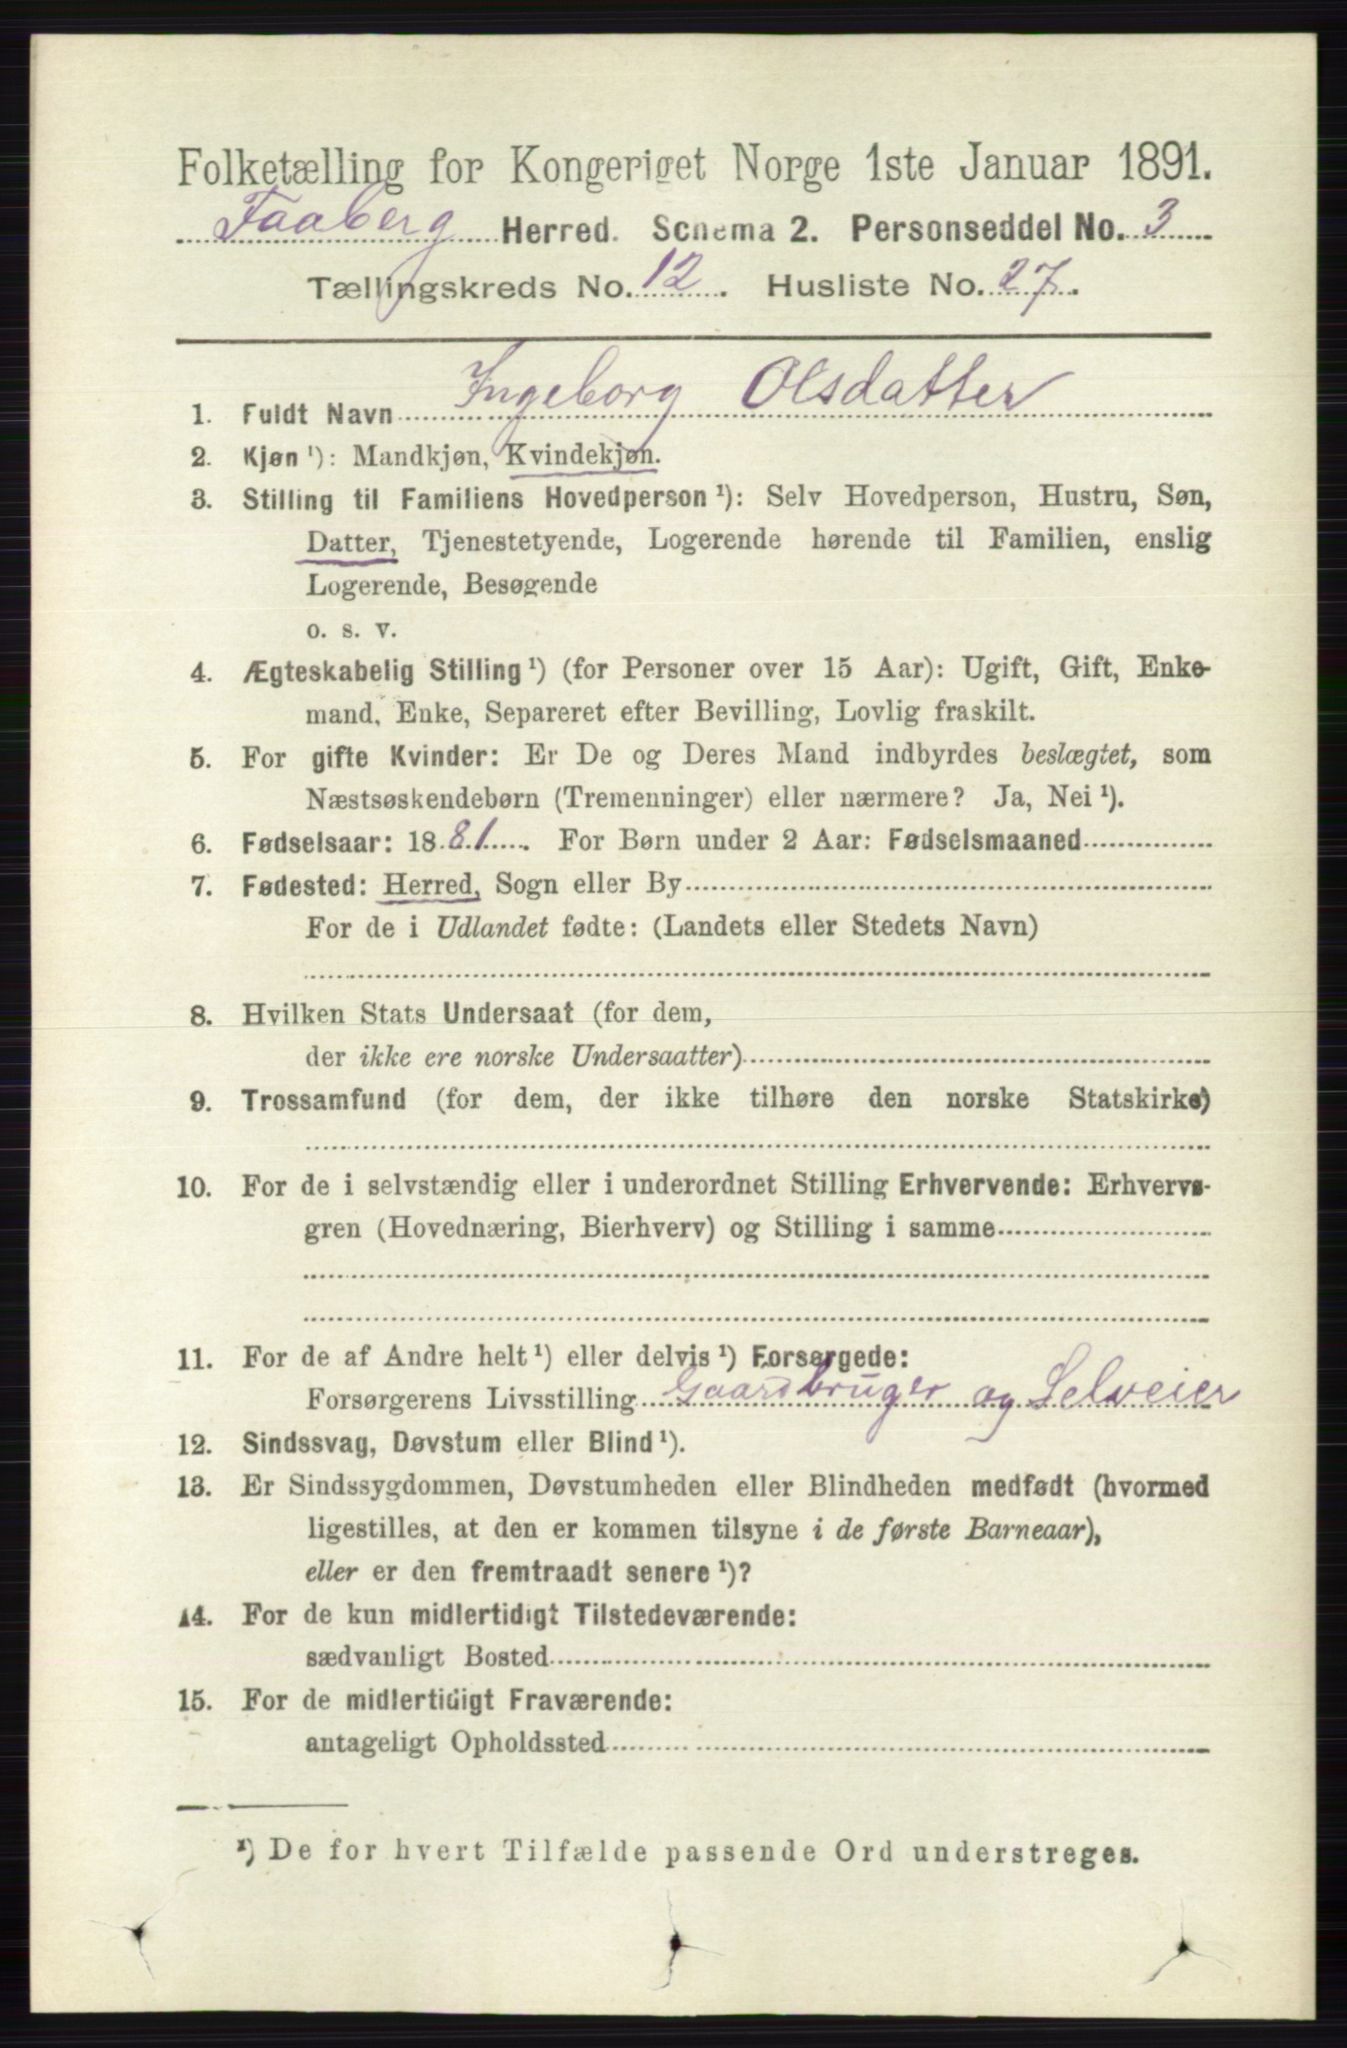 Folketælling for Kongeriget Norge 1ste Januar 1891.
Faaberg Herred. Schema 2. Personseddel No. 3
Tællingskreds No. 12. Husliste No. 27.
1. Fuldt Navn Ingeborg Olsdatter
2. Kjøn ¹): Mandkjøn, Kvindekjøn.
3. Stilling til Familiens Hovedperson ¹): Selv Hovedperson, Hustru, Søn,
Datter, Tjenestetyende, Logerende hørende til Familien, enslig
Logerende, Besøgende
o. s. v.
4. Ægteskabelig Stilling ¹) (for Personer over 15 Aar): Ugift, Gift, Enke-
mand, Enke, Separeret efter Bevilling, Lovlig fraskilt.
5. For gifte Kvinder: Er De og Deres Mand indbyrdes beslægtet, som
Næstsøskendebørn (Tremenninger) eller nærmere? Ja, Nei ¹).
6. Fødselsaar: 1881. For Børn under 2 Aar: Fødselsmaaned
7. Fødested: Herred, Sogn eller By
For de i Udlandet fødte: (Landets eller Stedets Navn)
8. Hvilken Stats Undersaat (for dem,
der ikke ere norske Undersaatter)
9. Trossamfund (for dem, der ikke tilhøre den norske Statskirke)
10. For de i selvstændig eller i underordnet Stilling Erhvervende: Erhvervs-
gren (Hovednæring, Bierhverv) og Stilling i samme
11. For de af Andre helt ¹) eller delvis ¹) Forsørgede:
Forsørgerens Livsstilling Gaardbruger og Selveier
12. Sindssvag, Døvstum eller Blind ¹).
13. Er Sindssygdommen, Døvstumheden eller Blindheden medfødt (hvormed
ligestilles, at den er kommen tilsyne i de første Barneaar),
eller er den fremtraadt senere ¹)?
14. For de kun midlertidigt Tilstedeværende:
sædvanligt Bosted
15. For de midlertidigt Fraværende:
antageligt Opholdssted
¹) De for hvert Tilfælde passende Ord understreges.